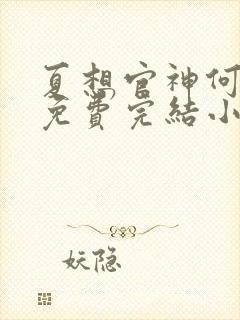 夏想官神何
免费完結小
妖隐